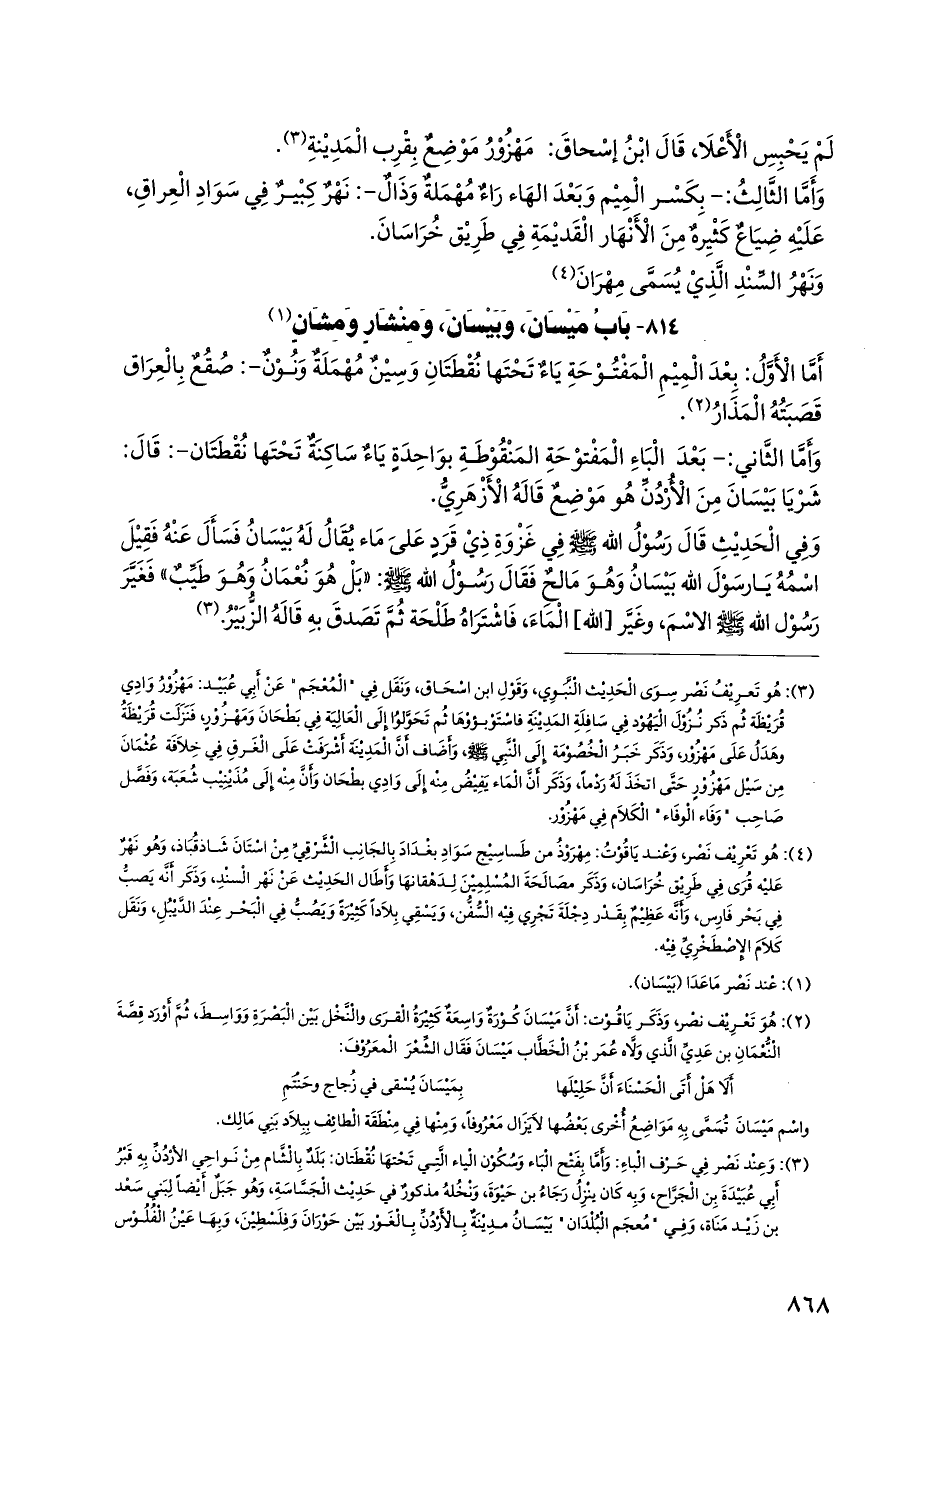 لَمْ يَحْبِسِ الْأَعْلَا، قَالَ ابْنُ إسْحاقَ: مَهْزُوْرُ مَوْضِعٌ بِقْرِبِ الْمَدِيْنةِ(٣).
وَأَمَّا الثَّالِثُ:- بِكَسْرِ الْمِيْمِ وَبَعْدَ الهَاء رَاءٌ مُهْمَلةٌ وَذَالٌ-: نَهْرٌ كَبِيْرٌ فِي سَوَادِ الْعِراقِ،
عَلَيْهِ ضِيَاعٌ كَثِيْرةٌ مِنَ الْأَنْهَارِ الْقَدِيْمَةِ فِي طَرِيْقِ خُرَاسَانَ.
وَنَهْرُ السِّنْدِ الَّذِيْ يُسَمَّى مِهْرَانَ(٤)
٨١٤- بَابُ مَيْسَانَ، وَبَيْسَانَ، وَمِنْشَارٍ وَمشَانٍ(١)
أَمَّا الْأَوَّلُ: بِعْدَ الْمِيْمِ الْمَفْتُوْحَةِ يَاءٌ تَحْتَهَا نُقْطَتَانِ وَسِيْنٌ مُهْمَلَةٌ وَنُوْنٌ-: صُقْعٌ بِالْعِرَاقِ
قَصَبَتُهُ الْمَذَارُ(٢).
وَأَمَّا الثَّاني:- بَعْدَ الْبَاءِ الْمَفْتوْحَةِ الْمَنْقُوْطَةِ بِوَاحِدَةٍ يَاءٌ سَاكِنَةٌ تَحْتَها نُقْطَتَان-: قَالَ:
شَرْيَا بَيْسَانَ مِنَ الْأُرْدُنِّ هُو مَوْضِعٌ قَالَهُ الْأَزْهَرِيُّ.
وَفِي الْحَدِيْثِ قَالَ رَسُوْلُ الله ﷺ فِي غَزْوَةِ ذِيْ قَرَدٍ عَلَى مَاء يُقَالُ لَهُ بَيْسَانُ فَسَأَلَ عَنْهُ فَقِيْلَ
اسْمُهُ يَارسَوْلَ الله بَيْسَانُ وَهُوَ مَالحٌ فَقَالَ رَسُوْلُ الله ﷺ: «بَلْ هُوَ نُعْمَانُ وَهُوَ طَيِّبٌ» فَغَيَّرَ
رَسُوْل الله ﷺ الاسْمَ، وغَيَّر [الله] الْمَاءَ، فَاشْتَراهُ طَلْحَة ثُمَّ تَصَدقَ بِهِ قَالَهُ الزُّبَيْرُ.(٣)
(٣): هُو تَعرِيْفُ نَصْر سِوَى الْحَدِيْث الْنَّبَوي، وَقَوْلِ ابن اسْحَاق، وَنَقَل فِي "الْمُعْجَم" عَنْ أَبِي عُبَيْد: مَهْزُوْرُ وَادِي
قُرَيْظَة ثُم ذَكر نُزُوْلَ الْيَهُود فِي سَافِلَة المَدِيْنَةِ فاسْتَوْبَؤوْهَا ثُم تَحَوَّلوْا إلَى الْعَالِيَةِ فِي بَطْحَانَ وَمَهْزُوْرٍ، فَنَزَلَت قُرَيْظَةُ
وَهَدَلُ عَلَى مَهْزُوْر، وَذَكَر خَبَرُ الْخُصُوْمَة إلَى النَّبِي ﷺ، وَأَضَاف أَنَّ الْمَدِيْنَة أَشْرَفَتْ عَلَى الْغَرقِ فِي خِلَافَة عُثْمَانَ
مِن سَيْل مَهْزُوْر حَتَّى اتخَذَ لَهُ رَدْماً، وَذَكَر أَنَّ الْمَاء يَفِيْضُ مِنْه إلَى وَادِي بطْحَان وَأَنَّ مِنْه إلَى مُذَيْنِيْب شُعْبَة، وَفَصَّل
صَاحِب "وَفَاء الْوفَاء" الْكَلَام فِي مَهْزُوْر.
(٤): هُو تَعْرِيْف نَصْر، وَعْند يَاقُوْتُ: مِهْرَوْذُ من طَساسِيْج سَوَاد بِغْدَادَ بِالْجَانِب الْشَّرْقِيِّ مِنْ اسْتَانَ شَاذقُبَاذ، وهُو نَهْرٌ
عَلَيْه قُرَى فِي طَرِيْقِ خُرَاسَان، وَذَكَر مصَالَحَة المُسْلِمِيْن لِدَهْقَانهَا وَأَطَال الحَدِيْثَ عَنْ نَهْرِ الْسِنْدِ، وَذَكَر أَنَّه يَصبُّ
فِي بَحْرِ فَارِس، وَأَنَّه عَظِيْمٌ بِقَدْر دِجْلَةَ تَجْرِي فِيْه الْسُّفُنُ، وَيَسْقِي بِلَاداً كَثِيْرَةً وَيَصُبُّ فِي الْبَحْرِ عِنْدَ الدَّيْبُل، وَنَقَل
كَلَامَ الإصْطَخْرِيِّ فِيْه.
(١): عْند نَصْر مَاعَدَا (بَيْسَان).
(٢): هُوَ تَعْرِيْف نصْر، وَذَكَر يَاقُوْت: أَنَّ مَيْسَانَ كُوْرَةٌ وَاسِعةٌ كَثِيْرَةُ الْقرَى والْنَّخْلِ بَيْن الْبَصْرَةِ وَوَاسِطَ، ثُمَّ أَوْرَد قِصَّةَ
النُّعْمَانِ بن عَدِيِّ الَّذي وَلَّاه عُمَر بنُ الْخَطَّاب مَيْسَانَ فَقَال الشِّعْرَ الْمَعرُوْفَ:
أَلَا هَلْ أَتَى الْحَسْنَاءَ أَنَّ حَلِيْلَها بِمَيْسَانَ يُسْقى في زُجاجٍ وحَنْتُمِ
واسْم مَيْسَانَ تُسَمَّى بِهِ مَوَاضِعُ أُخْرى بَعْضُها لَايَزال مَعْرُوفاً، وَمِنْها فِي مِنْطَقَة الْطائِف بِبِلَاد بَنِي مَالِك.
(٣): وَعِنْد نَصْر فِي حَرْف الْباءِ: وَأَمَّا بِفَتْحِ الْبَاء وَسُكُوْن الْياء الَّتِي تَحْتهَا نُقْطَتَان: بَلَدٌ بِالْشَّام مِنْ نَواحِي الأرْدُنِّ بِهِ قَبْرُ
أَبِي عُبَيْدَة بنِ الْجَرَّاح، وَبِه كَان يَنْزِلُ رَجَاءُ بن حَيْوَة، وَنْخْلُهُ مذكورٌ في حَدِيْث الْجَسَّاسَة، وَهُو جَبَلٌ أَيْضاً لِبَنِي سَعْد
بن زَيْد مَنَاة، وَفِي "مُعجَم الْبُلْدَان" بَيْسَانُ مدِيْنةٌ بِالْأَرْدُنِّ بِالْغَوْر بَيْن حَوْرَانَ وَفِلَسْطِيْنَ، وَبِهَا عَيْنُ الْفُلُوْس
٨٦٨